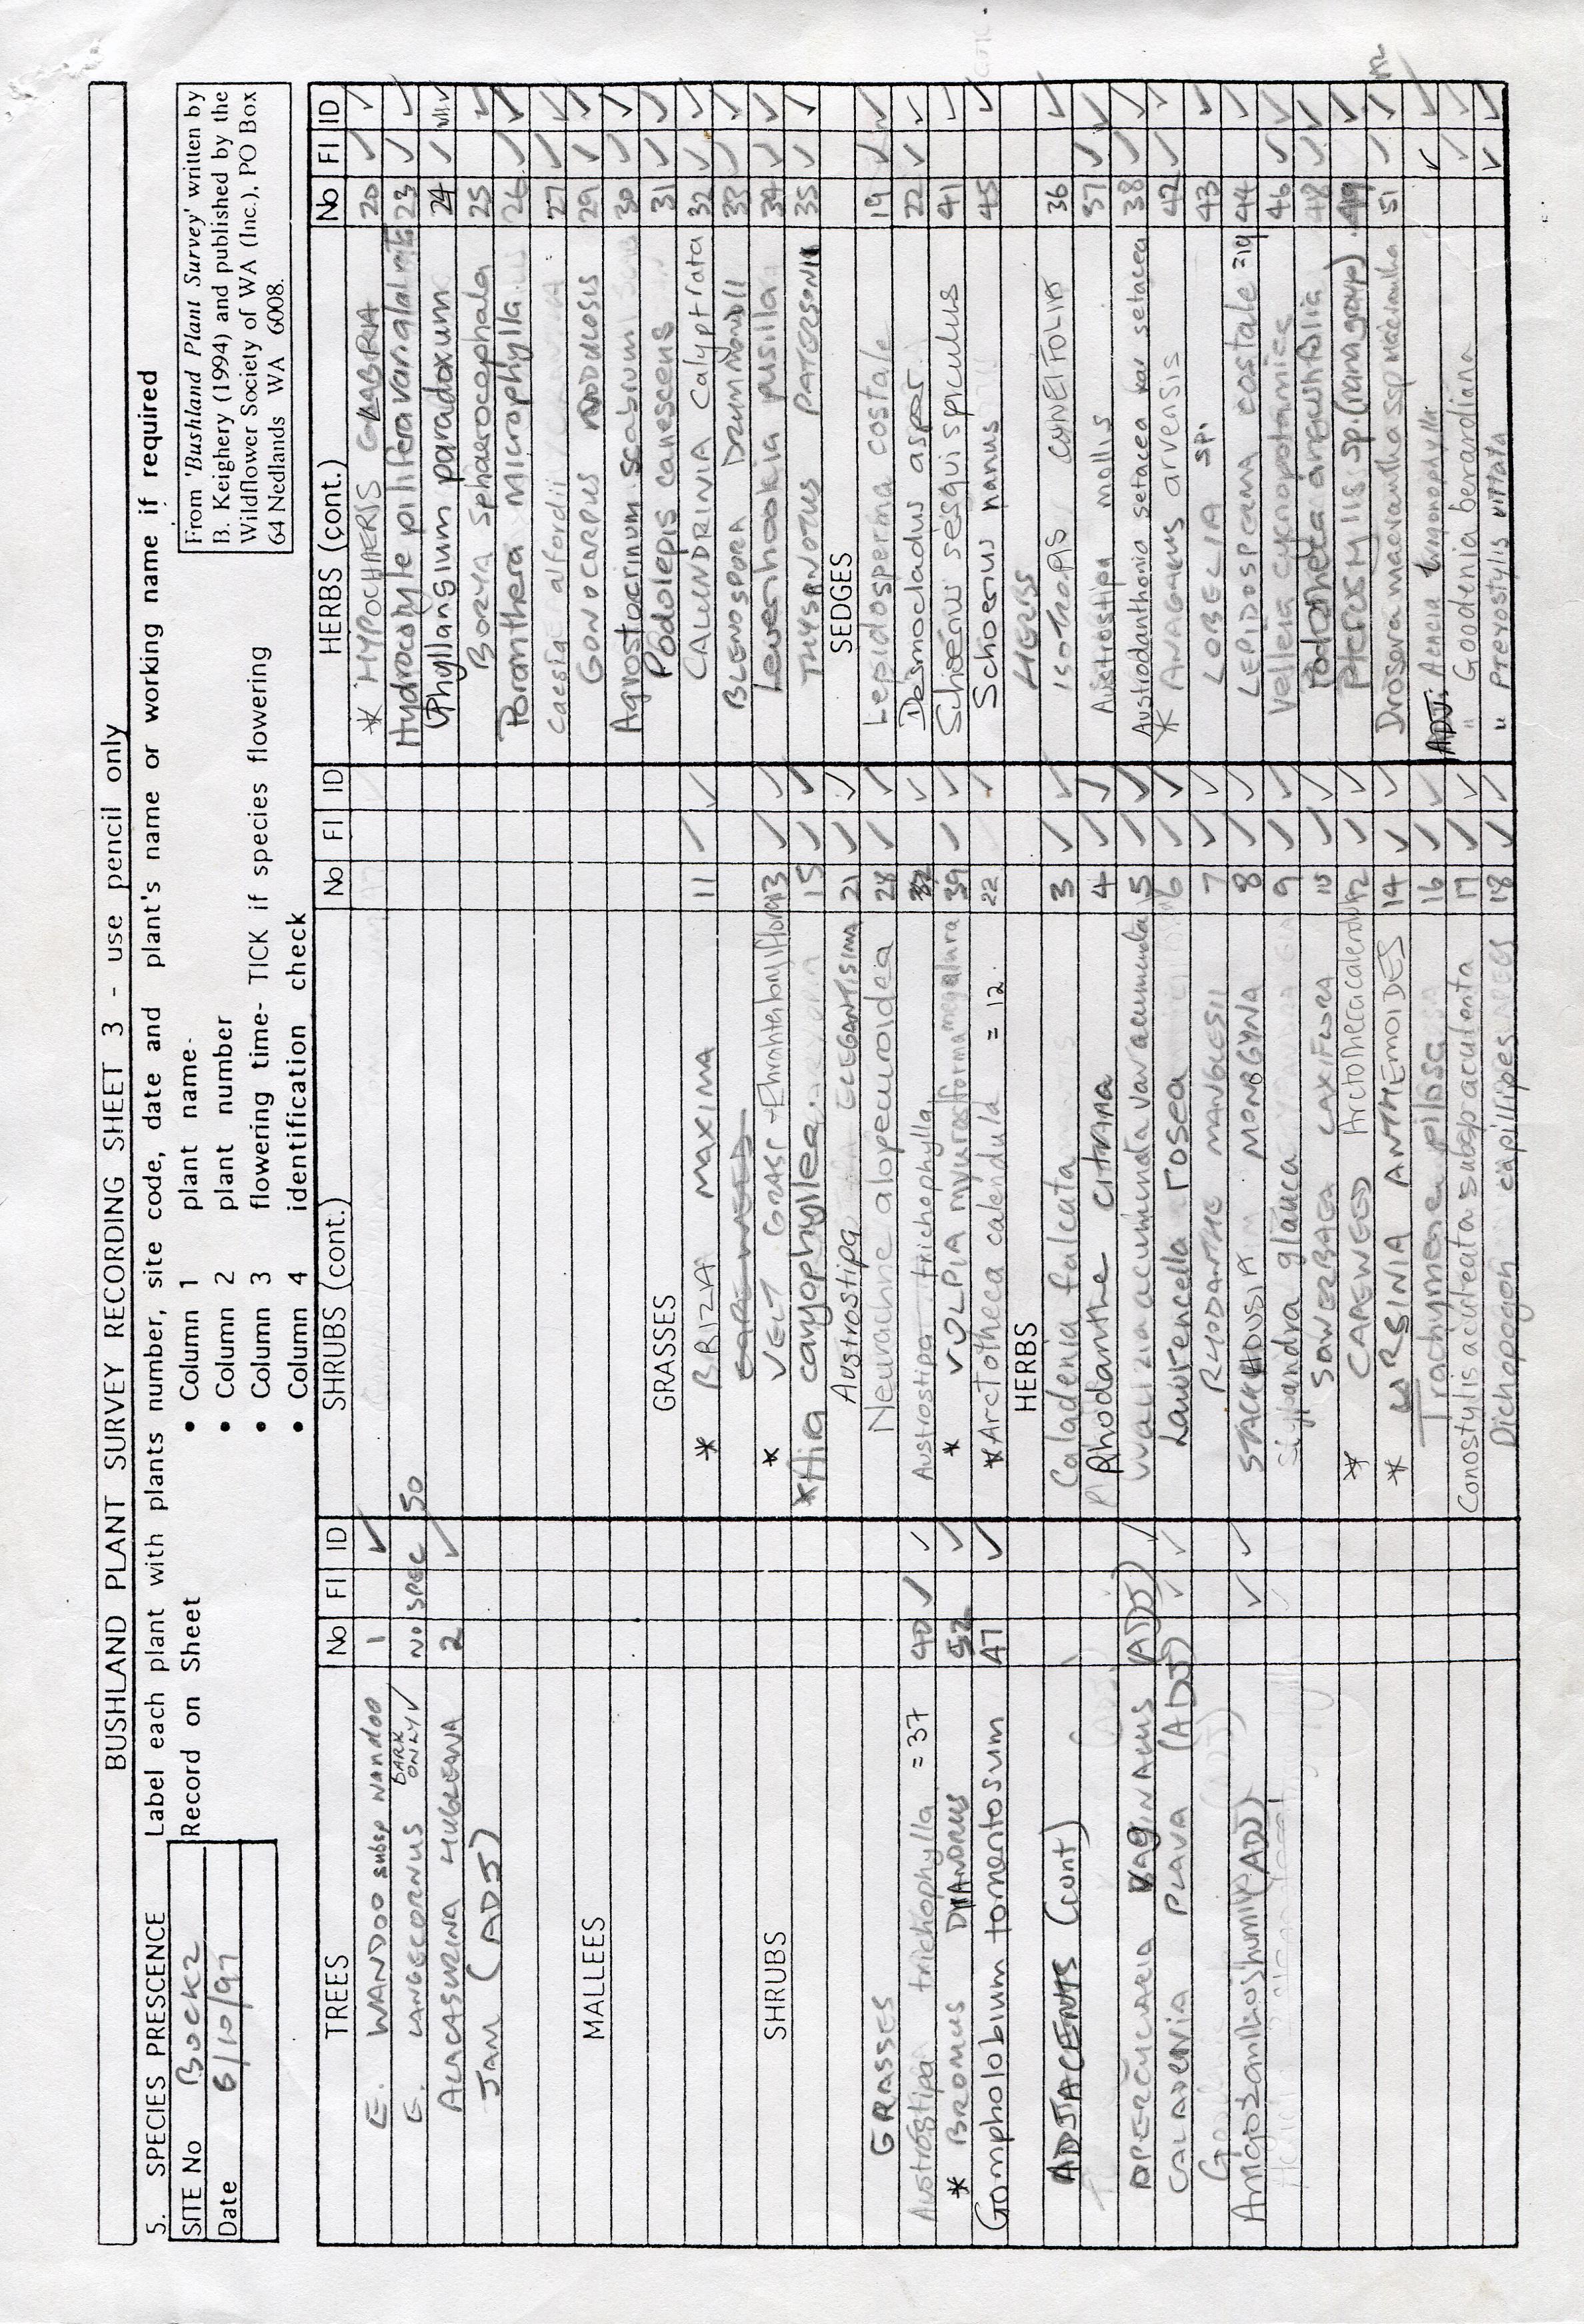 BUSHLAND PLANT SURVEY RECORDING SHEET 3 - use pencil only
5. SPECIES PRESCENCE
Label each plant with plants number, site code, date and plant's name or working name if required
SITE No BOCK2
Date 6/10/97
Record on Sheet
• Column 1 plant name-
• Column 2 plant number
• Column 3 flowering time- TICK if species flowering
• Column 4 identification check
From 'Bushland Plant Survey' written by
B. Keighery (1994) and published by the
Wildflower Society of WA (Inc.), PO Box
64 Nedlands WA 6008.
TREES No Fl ID
E. WANDOO subsp wandoo 1 ✓
E. LANGECORNUS BARK ONLY ✓ NO SPEC 50
ALLACASURINA HUGLEANA 2 ✓
JAM (ADJ)
MALLEES
SHRUBS
GRASSES
Austrostipa trichophylla = 37 40 ✓ ✓
* BROMUS DIANDRUS 52 ✓
Gompholobium tomentosum 47 ✓
ADJACENTS (cont)
OPERCULARIA VAGINATUS (ADJ) ✓
CALADENIA FLAVA (ADJ) ✓ ✓
Anigozanthos humilis (ADJ) ✓ ✓
SHRUBS (cont.) No Fl ID
GRASSES
* BRIZA MAXIMA 11 ✓ ✓
* VELT GRASS - Ehrahta longiflora 13 ✓ ✓
* Aira caryophyllea 15 ✓ ✓
Austrostipa ELEGANTISIMA 21 ✓ ✓
Neurachne alopecuroidea 28 ✓ ✓
Austrostipa trichophylla 37 ✓
* VULPIA myuros forma megalura 39 ✓ ✓
* Arctotheca calendula = 12. 22 ✓
HERBS
Caladenia falcata 3 ✓ ✓
Rhodanthe citrina 4 ✓ ✓
Waizia acuminata var acuminata 5 ✓ ✓
Lawrencella rosea 6 ✓ ✓
RHODANTHE MANGLESII 7 ✓ ✓
STACKHOUSIA MONOGYNA 8 ✓ ✓
Stypandra glauca 9 ✓ ✓
SOWERBAEA LAXIFLORA 10 ✓ ✓
* CAPEWEED Arctotheca calendula 12 ✓ ✓
* URSINIA ANTHEMOIDES 14 ✓ ✓
Trachymene pilosa 16 ✓ ✓
Conostylis aculeata subsp aculenta 17 ✓ ✓
Dichopogon capillipes 18 ✓ ✓
HERBS (cont.) No Fl ID
* HYPOCHAERIS GLABRIA 20 ✓ ✓
Hydrocotyle pilifera var glabrata 23 ✓ ✓
Phyllangium paradoxum 24 ✓
Borya sphaerocephala 25 ✓
Poranthera microphylla 26 ✓ ✓
Caesia alfordii 27 ✓ ✓
GONOCARPUS NODULOSIS 29 ✓ ✓
Agrostocrinum scabrum 30 ✓ ✓
Podolepis canescens 31 ✓ ✓
CALENDRINIA Calyptrata 32 ✓ ✓
BLENOSPORA DRUMMONDII 33 ✓ ✓
Levenhookia pusilla 34 ✓ ✓
THYSANOTUS PATERSONII 35 ✓ ✓
SEDGES
Lepidosperma costale 19 ✓ ✓
Desmocladus asper 22 ✓ ✓
Schoenus sesquispiculus 41 ✓
Schoenus nanus 45 ✓
HERBS
ISOTROPIS CUNEIFOLIA 36 ✓
Austrostipa mollis 37 ✓ ✓
Austrodanthonia setacea var setacea 38 ✓ ✓
* ANAGALUS arvensis 42 ✓ ✓
LOBELIA SP. 43 ✓
LEPIDOSPERMA costale =19 44 ✓
Velleia cycnopotamica 46 ✓ ✓
Podotheca angustifolia 48 ✓ ✓
Pterostylis sp. (nana group) 49 ✓
Drosera macrantha ssp macrantha 51 ✓ ✓
ADJ: Acacia ✓ ✓
" Goodenia berardiana ✓ ✓
" Pterostylis vittata ✓ ✓